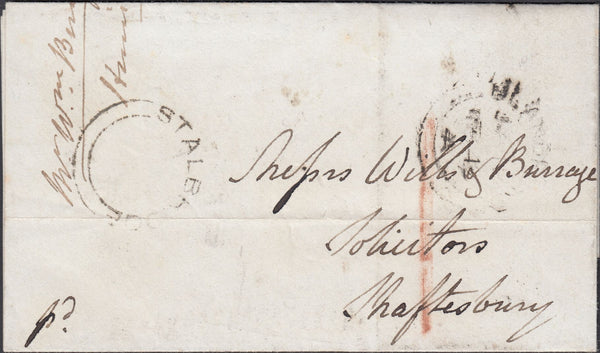 Mr Wm
STALB
Messrs Wills & Burrage
Solicitors
Shaftesbury
pd.